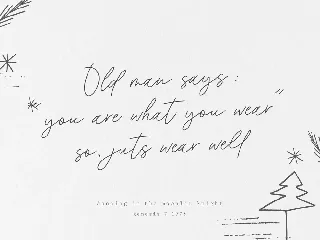 Old man says:
you are what you wear"
so, juts wear well